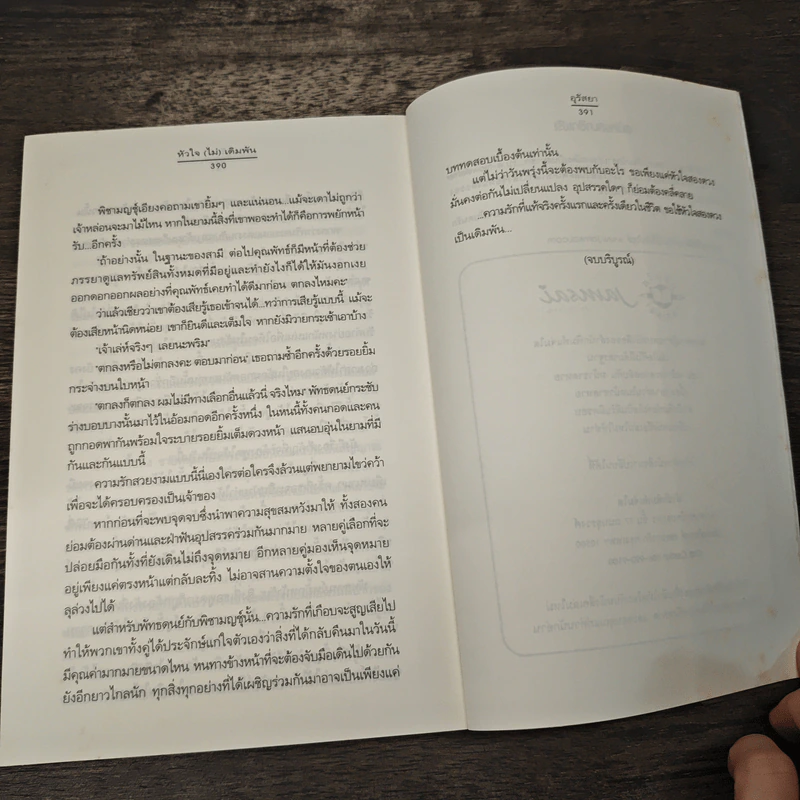 หัวใจ (ไม่) เดิมพัน
390
พิชามญชุ์เอียงคอถามเขายิ้มๆ และแน่นอน...แม้จะเดาไม่ถูกว่า
เจ้าหล่อนจะมาไม้ไหน หากในยามนี้สิ่งที่เขาพอจะทำได้ก็คือการพยักหน้า
รับ...อีกครั้ง
"ถ้าอย่างนั้น ในฐานะของสามี ต่อไปคุณพัทธ์ก็มีหน้าที่ต้องช่วย
ภรรยาดูแลทรัพย์สินทั้งหมดที่มีอยู่และทำยังไงก็ได้ให้มันงอกเงย
ออกดอกออกผลอย่างที่คุณพัทธ์เคยทำได้ดีมาก่อน ตกลงไหมคะ"
ว่าแล้วเชียวว่าเขาต้องเสียรู้เธอเข้าจนได้...ทว่าการเสียรู้แบบนี้ แม้จะ
ต้องเสียหน้านิดหน่อย เขาก็ยินดีและเต็มใจ หากยังมิวายกระเซ้าเอาบ้าง
"เจ้าเล่ห์จริงๆ เลยนะพริม"
"ตกลงหรือไม่ตกลงคะ ตอบมาก่อน" เธอถามซ้ำอีกครั้งด้วยรอยยิ้ม
กระจ่างบนใบหน้า
"ตกลงก็ตกลง ผมไม่มีทางเลือกอื่นแล้วนี่ จริงไหม" พัทธดนย์กระชับ
ร่างบอบบางนั้นมาไว้ในอ้อมกอดอีกครั้งหนึ่ง ในหนนี้ทั้งคนกอดและคน
ถูกกอดพากันพร้อมใจระบายรอยยิ้มเต็มดวงหน้า แสนอบอุ่นในยามที่มี
กันและกันแบบนี้
ความรักสวยงามแบบนี้นี่เองใครต่อใครจึงล้วนแต่พยายามไขว่คว้า
เพื่อจะได้ครอบครองเป็นเจ้าของ
หากก่อนที่จะพบจุดจบซึ่งนำพาความสุขสมหวังมาให้ ทั้งสองคน
ย่อมต้องผ่านด่านและฝ่าฟันอุปสรรคร่วมกันมากมาย หลายคู่เลือกที่จะ
ปล่อยมือกันทั้งที่ยังเดินไม่ถึงจุดหมาย อีกหลายคู่มองเห็นจุดหมาย
อยู่เพียงแค่ตรงหน้าแต่กลับละทิ้ง ไม่อาจสานความตั้งใจของตนเองให้
ลุล่วงไปได้
แต่สำหรับพัทธดนย์กับพิชามญชุ์นั้น...ความรักที่เกือบจะสูญเสียไป
ทำให้พวกเขาทั้งคู่ได้ประจักษ์แก่ใจตัวเองว่าสิ่งที่ได้กลับคืนมาในวันนี้
มีคุณค่ามากมายขนาดไหน หนทางข้างหน้าที่จะต้องจับมือเดินไปด้วยกัน
ยังอีกยาวไกลนัก ทุกสิ่งทุกอย่างที่ได้เผชิญร่วมกันมาอาจเป็นเพียงแค่
อุรัสยา
391
บททดสอบเบื้องต้นเท่านั้น
แต่ไม่ว่าวันพรุ่งนี้จะต้องพบกับอะไร ขอเพียงแค่หัวใจสองดวง
มั่นคงต่อกันไม่เปลี่ยนแปลง อุปสรรคใดๆ ก็ย่อมต้องคลี่คลาย
...ความรักที่แท้จริงครั้งแรกและครั้งเดียวในชีวิต ขอใช้หัวใจสองดวง
เป็นเดิมพัน...
(จบบริบูรณ์)